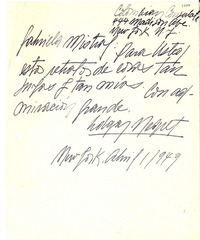 Colombian Consulate
444 Madison Ave
New York N.Y.
Gabriela Mistral: Para Usted
este retrato de cosas tan
suyas y tan mias con ad-
miración grande.
Edgar Negret
New York. Abril 1/1949